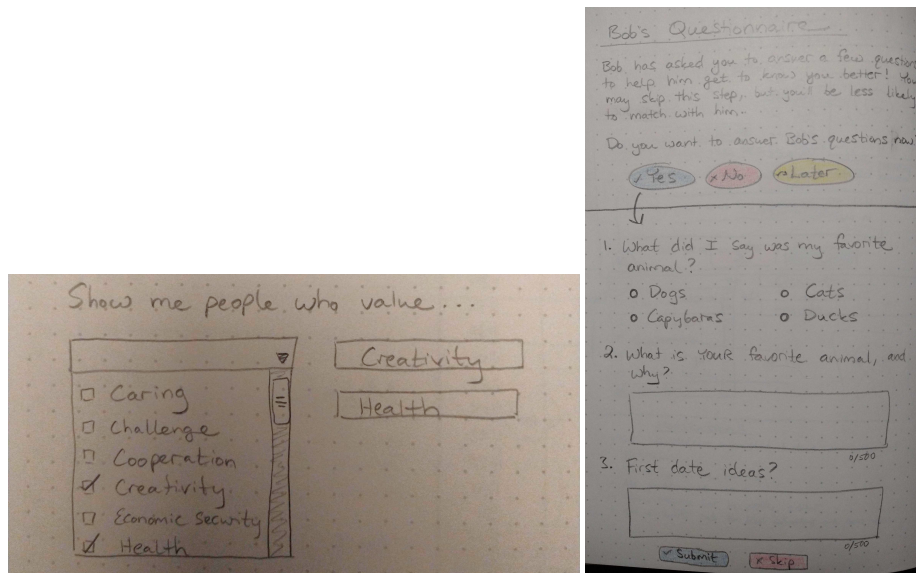 Show me people who value...
Creativity
Health
Caring
Challenge
Cooperation
Creativity
Economic Security
Health
Bob's Questionnaire
Bob has asked you to answer a few question
to help him get to know you better! You
may skip this step, but you'll be less likely
to match with him.
Do you want to answer Bob's questions now
Yes No Later
1. What did I say was my favorite
animal?
Dogs Cats
Capybaras Ducks
2. What is YOUR favorite animal, and
why?
0/500
3. First date ideas?
0/500
Submit Skip